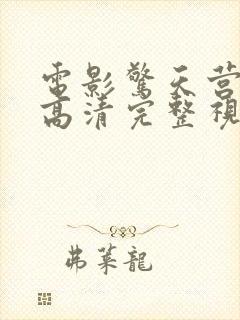 電影驚天营
高清完整視
弗萊龍